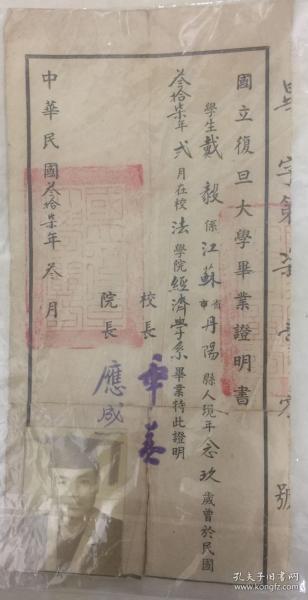 畢字第
號
國立復旦大學畢業證明書
學生戴毅係江蘇省市丹陽縣人現年念玖歲曾於民國
叁拾柒年弍月在校法學院經濟學系畢業特此證明
校長章益
院長應成
中華民國叁拾柒年叁月
孔夫子旧书网